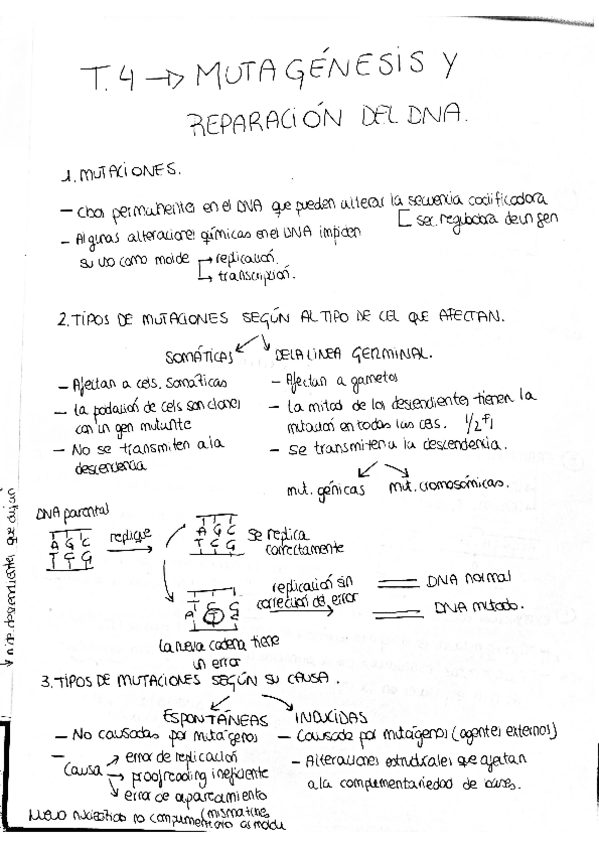 T.4 → MUTAGÉNESIS Y
REPARACIÓN DEL DNA.
1. MUTACIONES.
- Cbos permanentes en el DNA que pueden alterar la secuencia codificadora
[ sec. reguladora de un gen
- Algunas alteraciones químicas en el DNA impiden
su uso como molde → replicación.
→ transcripción.
2. TIPOS DE MUTACIONES SEGÚN AL TIPO DE CEL QUE AFECTAN.
SOMÁTICAS
DE LA LINEA GERMINAL.
- Afectan a cels. somáticas
- La población de cels son clones
con un gen mutante
- No se transmiten a la
descendencia
- Afectan a gametos
- La mitad de los descendientes tienen la
mutación en todas las cels. 1/2 F1
- Se transmiten a la descendencia.
mut. génicas
mut. cromosómicas.
DNA parental
A G C
T C G
replique
A G C
T C G
se replica
correctamente
A T C G
La nueva cadena tiene
un error
replicación sin
corrección del error
DNA normal
DNA mutado.
descendientes que dejan
3. TIPOS DE MUTACIONES SEGÚN SU CAUSA.
ESPONTÁNEAS
INDUCIDAS
- No causadas por mutágenos
- Causa → error de replicación
→ proofreading ineficiente
→ error de apareamiento
(mismatches
Nuevo nucleótido no complementario al molde
- Causada por mutágenos (agentes externos)
- Alteraciones estructurales que afectan
a la complementariedad de bases.